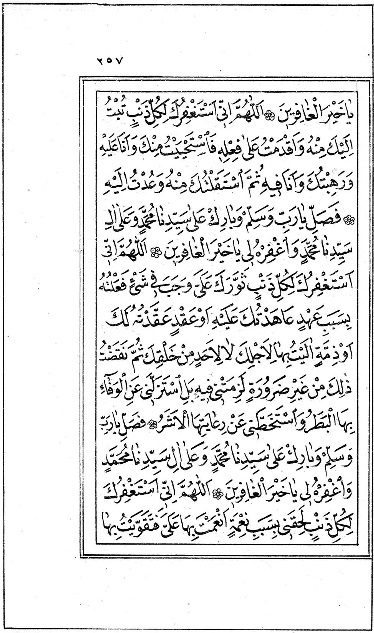 ٢٥٧
يَاخَيْرَ الْغَافِرِينَ ۞ اَللّٰهُمَّ اِنِّى اَسْتَغْفِرُكَ لِكُلِّ ذَنْبٍ تُبْتُ
اِلَيْكَ مِنْهُ وَاَقْدَمْتُ عَلٰى فِعْلِهِ فَاسْتَحْيَيْتُ مِنْكَ وَاَنَا عَلَيْهِ
وَرَهِبْتُكَ وَاَنَا فِيهِ ثُمَّ اسْتَقَلْتُكَ مِنْهُ وَعُدْتُ اِلَيْهِ
۞ فَصَلِّ يَارَبِّ وَسَلِّمْ وَبَارِكْ عَلٰى سَيِّدِنَا مُحَمَّدٍ وَعَلٰى اٰلِ
سَيِّدِنَا مُحَمَّدٍ وَاغْفِرْهُ لِى يَاخَيْرَ الْغَافِرِينَ ۞ اَللّٰهُمَّ اِنِّى
اَسْتَغْفِرُكَ لِكُلِّ ذَنْبٍ تَوَرَّكَ عَلَىَّ وَجَبَ فِى شَىْءٍ فَعَلْتُهُ
بِسَبَبِ عَهْدٍ عَاهَدْتُكَ عَلَيْهِ اَوْ عَقْدٍ عَقَدْتُهُ لَكَ
اَوْ ذِمَّةٍ اٰلَيْتُ بِهَا لِاَجْلِكَ لَا لِاَحَدٍ مِنْ خَلْقِكَ ثُمَّ نَقَضْتُ
ذٰلِكَ مِنْ غَيْرِ ضَرُورَةٍ لَزِمَتْنِى فِيهِ بَلِ اسْتَزَلَّنِى عَنِ الْوَفَاءِ
بِهَا الْبَطَرُ وَاسْتَحَطَّنِى عَنْ رِعَايَتِهَا الْاَشَرُ ۞ فَصَلِّ يَارَبِّ
وَسَلِّمْ وَبَارِكْ عَلٰى سَيِّدِنَا مُحَمَّدٍ وَعَلٰى اٰلِ سَيِّدِنَا مُحَمَّدٍ
وَاغْفِرْهُ لِى يَاخَيْرَ الْغَافِرِينَ ۞ اَللّٰهُمَّ اِنِّى اَسْتَغْفِرُكَ
لِكُلِّ ذَنْبٍ لَحِقَنِى بِسَبَبِ نِعْمَةٍ اَنْعَمْتَ بِهَا عَلَىَّ فَتَقَوَّيْتُ بِهَا